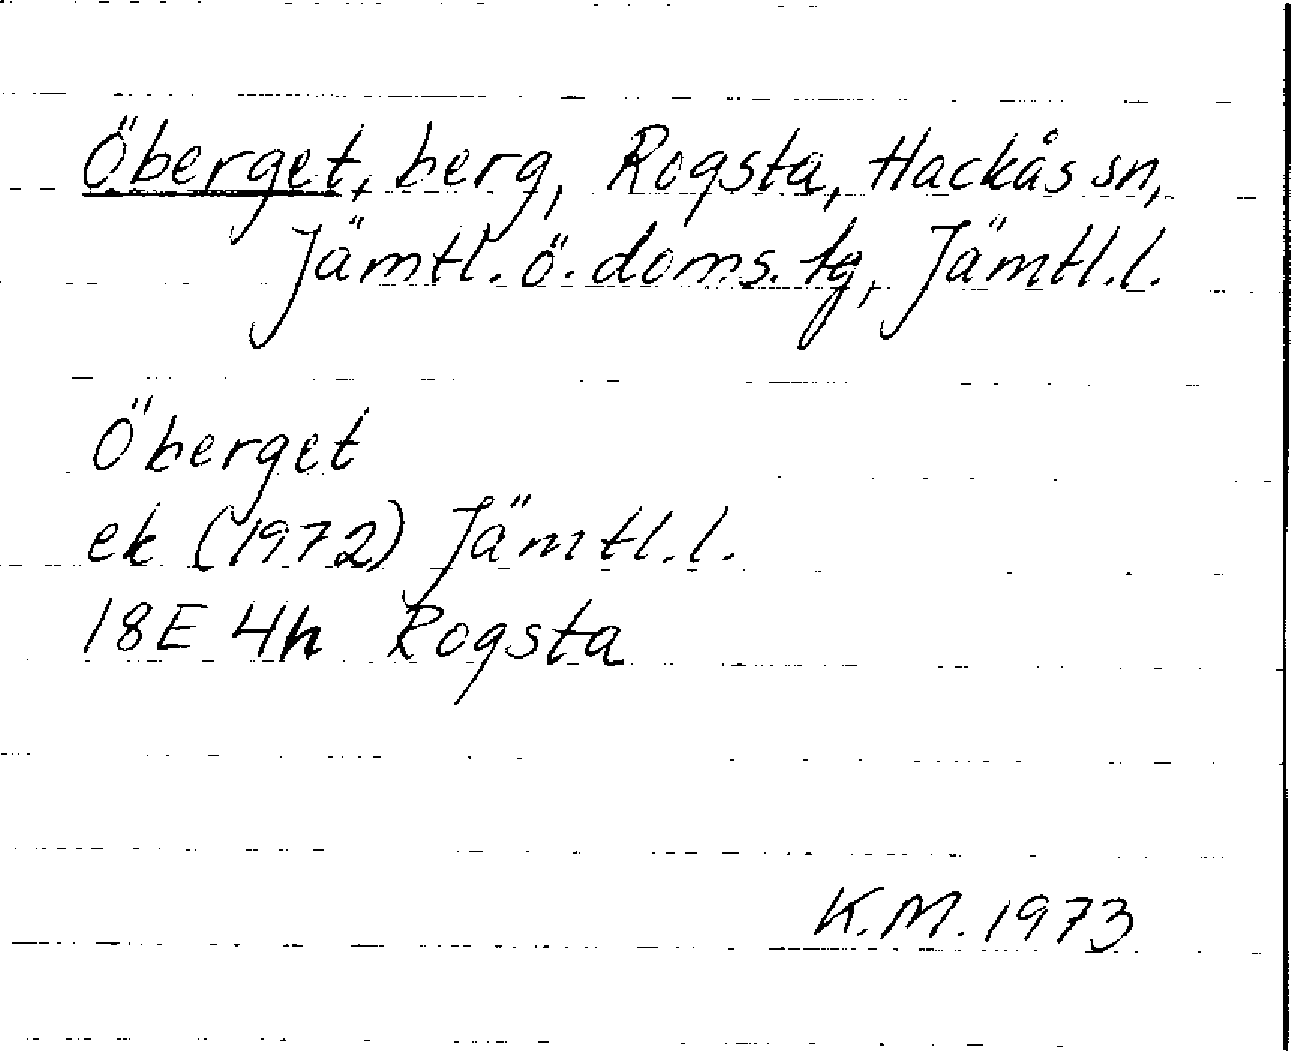 Öberget, berg, Rogsta, Hackås sn,
Jämtl. ö. doms. tg, Jämtl. l.
Öberget
ek (1972) Jämtl. l.
18E 4h Rogsta
K.M. 1973